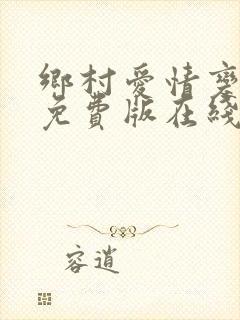 鄉村愛情變
免費版在綫
容逍